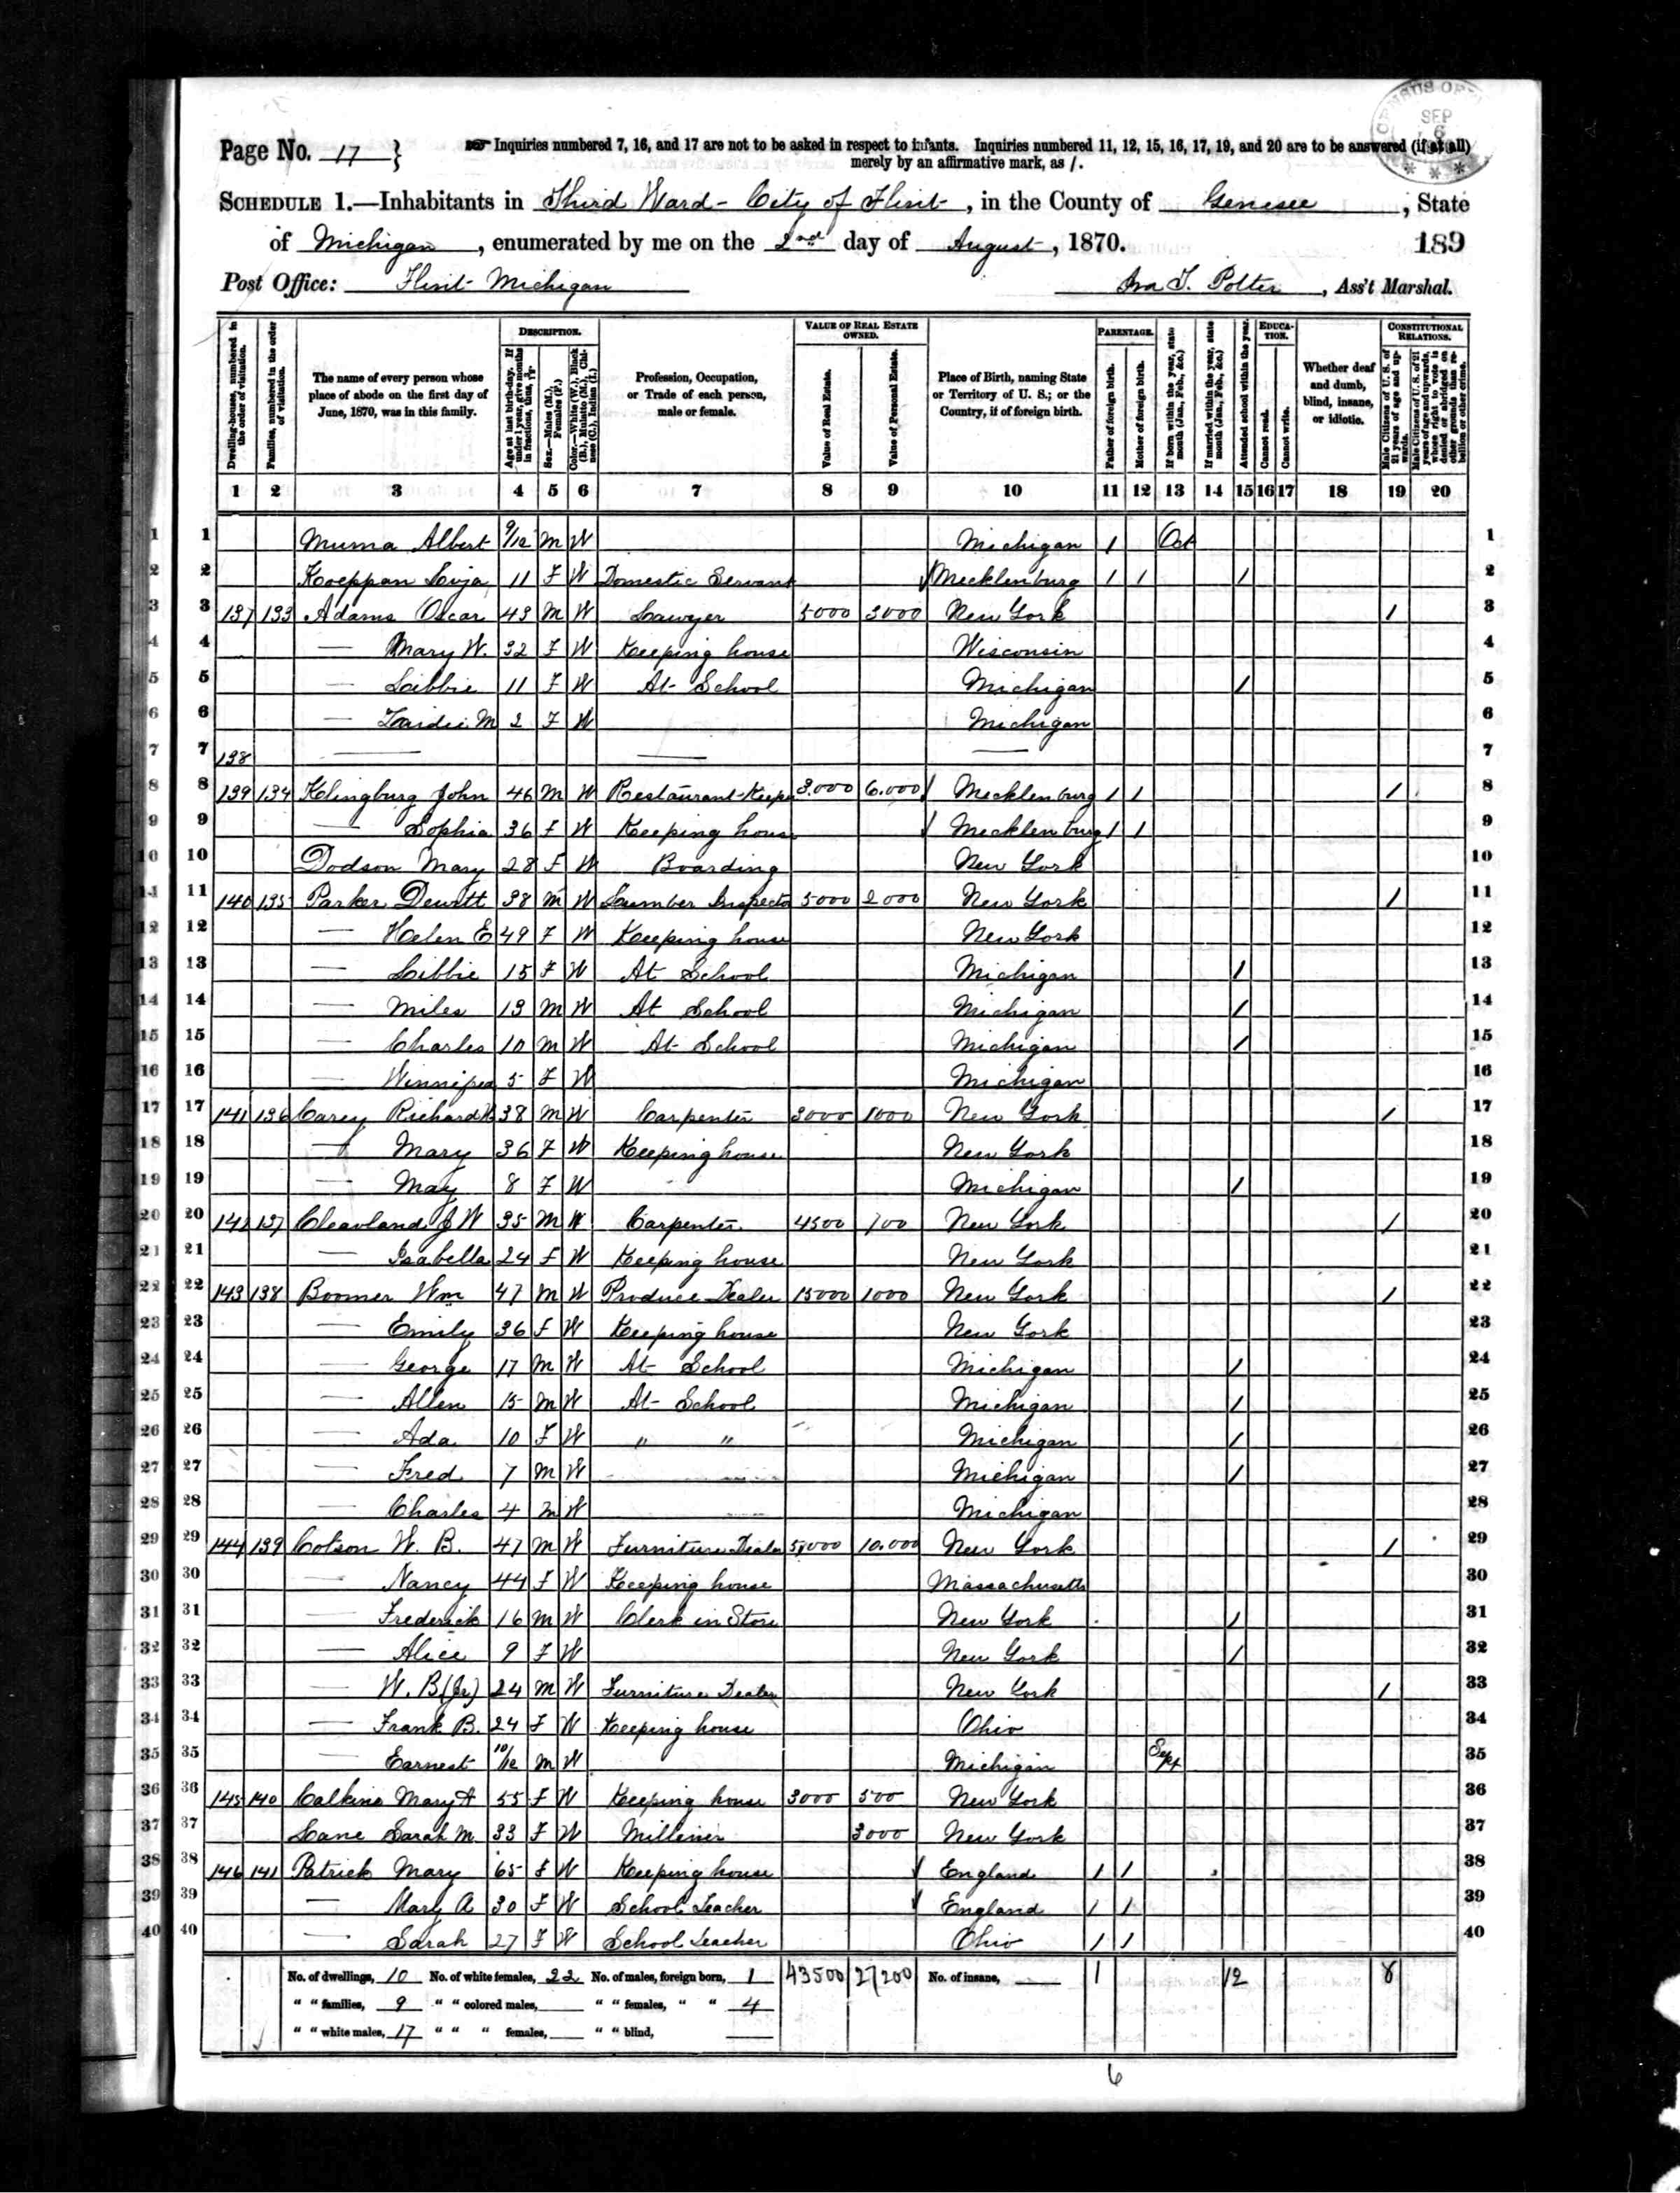 CENSUS OF
SEP
6
Page No. 17 } Inquiries numbered 7, 16, and 17 are not to be asked in respect to infants. Inquiries numbered 11, 12, 15, 16, 17, 19, and 20 are to be answered (if at all)
merely by an affirmative mark, as /.
SCHEDULE 1.—Inhabitants in Third Ward - City of Flint, in the County of Genesee, State
of Michigan, enumerated by me on the 2nd day of August, 1870. 189
Post Office: Flint Michigan Ira T. Potter, Ass't Marshal.
Dwelling-houses, numbered in the order of visitation.
Families, numbered in the order of visitation.
The name of every person whose place of abode on the first day of June, 1870, was in this family.
DESCRIPTION.
Age at last birth-day. If under 1 year, give months in fractions, thus,
Sex.—Males (M.), Females (F.)
Color.—White (W.), Black (B.), Mulatto (M.), Chinese (C.), Indian (I.)
Profession, Occupation, or Trade of each person, male or female.
VALUE OF REAL ESTATE OWNED.
Value of Real Estate.
Value of Personal Estate.
Place of Birth, naming State or Territory of U. S.; or the Country, if of foreign birth.
PARENTAGE.
Father of foreign birth.
Mother of foreign birth.
If born within the year, state month (Jan., Feb., &c.)
If married within the year, state month (Jan., Feb., &c.)
Attended school within the year.
EDUCATION.
Cannot read.
Cannot write.
Whether deaf and dumb, blind, insane, or idiotic.
CONSTITUTIONAL RELATIONS.
Male Citizens of U. S. of 21 years of age and upwards.
Male Citizens of U. S. of 21 years of age and upwards, whose right to vote is denied or abridged on other grounds than rebellion or other crime.
1 2 3 4 5 6 7 8 9 10 11 12 13 14 15 16 17 18 19 20
1 1 Muma Albert 9/12 M W Michigan / Oct 1
2 2 Koeppan 11 F W Domestic Servant Mecklenburg / / / 2
3 3 137 133 Adams Oscar 43 M W Lawyer 5000 3000 New York / 3
4 4 — Mary W. 32 F W Keeping house Wisconsin 4
5 5 — Libbie 11 F W At School Michigan / 5
6 6 — M 2 F W Michigan 6
7 7 138 — — — 7
8 8 139 134 Klingburg John 46 M W Restaurant Keeper 3.000 6.000 Mecklenburg / / / 8
9 9 — Sophia 36 F W Keeping house Mecklenburg / / 9
10 10 Dodson Mary 28 F W Boarding New York 10
11 11 140 135 Parker Dewitt 38 M W Lumber Inspector 5000 2000 New York / 11
12 12 — Helen E 49 F W Keeping house New York 12
13 13 — Libbie 15 F W At School Michigan / 13
14 14 — Miles 13 M W At School Michigan / 14
15 15 — Charles 10 M W At School Michigan / 15
16 16 — 5 F W Michigan 16
17 17 141 136 Carey Richard 38 M W Carpenter 3000 1000 New York / 17
18 18 — Mary 36 F W Keeping house New York 18
19 19 — May 8 F W Michigan / 19
20 20 142 137 Cleavland J W 35 M W Carpenter 4500 700 New York / 20
21 21 — Isabella 24 F W Keeping house New York 21
22 22 143 138 Boomer Wm 47 M W Produce Dealer 15000 1000 New York / 22
23 23 — Emily 36 F W Keeping house New York 23
24 24 — George 17 M W At School Michigan / 24
25 25 — Allen 15 M W At School Michigan / 25
26 26 — Ada 10 F W " " Michigan / 26
27 27 — Fred 7 M W Michigan / 27
28 28 — Charles 4 M W Michigan 28
29 29 144 139 Cotson W. B. 47 M W Furniture Dealer 5,000 10.000 New York / 29
30 30 — Nancy 44 F W Keeping house Massachusetts 30
31 31 — Frederick 16 M W Clerk in Store New York / 31
32 32 — Alice 9 F W New York / 32
33 33 — W. B (Jr) 24 M W Furniture Dealer New York / 33
34 34 — Frank B. 24 F W Keeping house Ohio 34
35 35 — Earnest 10/12 M W Michigan Sept 35
36 36 145 140 Calkins Mary A 55 F W Keeping house 3000 500 New York 36
37 37 Lane Sarah M. 33 F W Milliner 3000 New York 37
38 38 146 141 Patrick Mary 65 F W Keeping house England / / 38
39 39 — Mary A 30 F W School Teacher England / / 39
40 40 — Sarah 27 F W School Teacher Ohio / / 40
No. of dwellings, 10 No. of white females, 22 No. of males, foreign born, 1 43500 27200 No. of insane, 1 12 8
" " families, 9 " " colored males, " " females, " " 4
" " white males, 17 " " " females, " " blind,
6